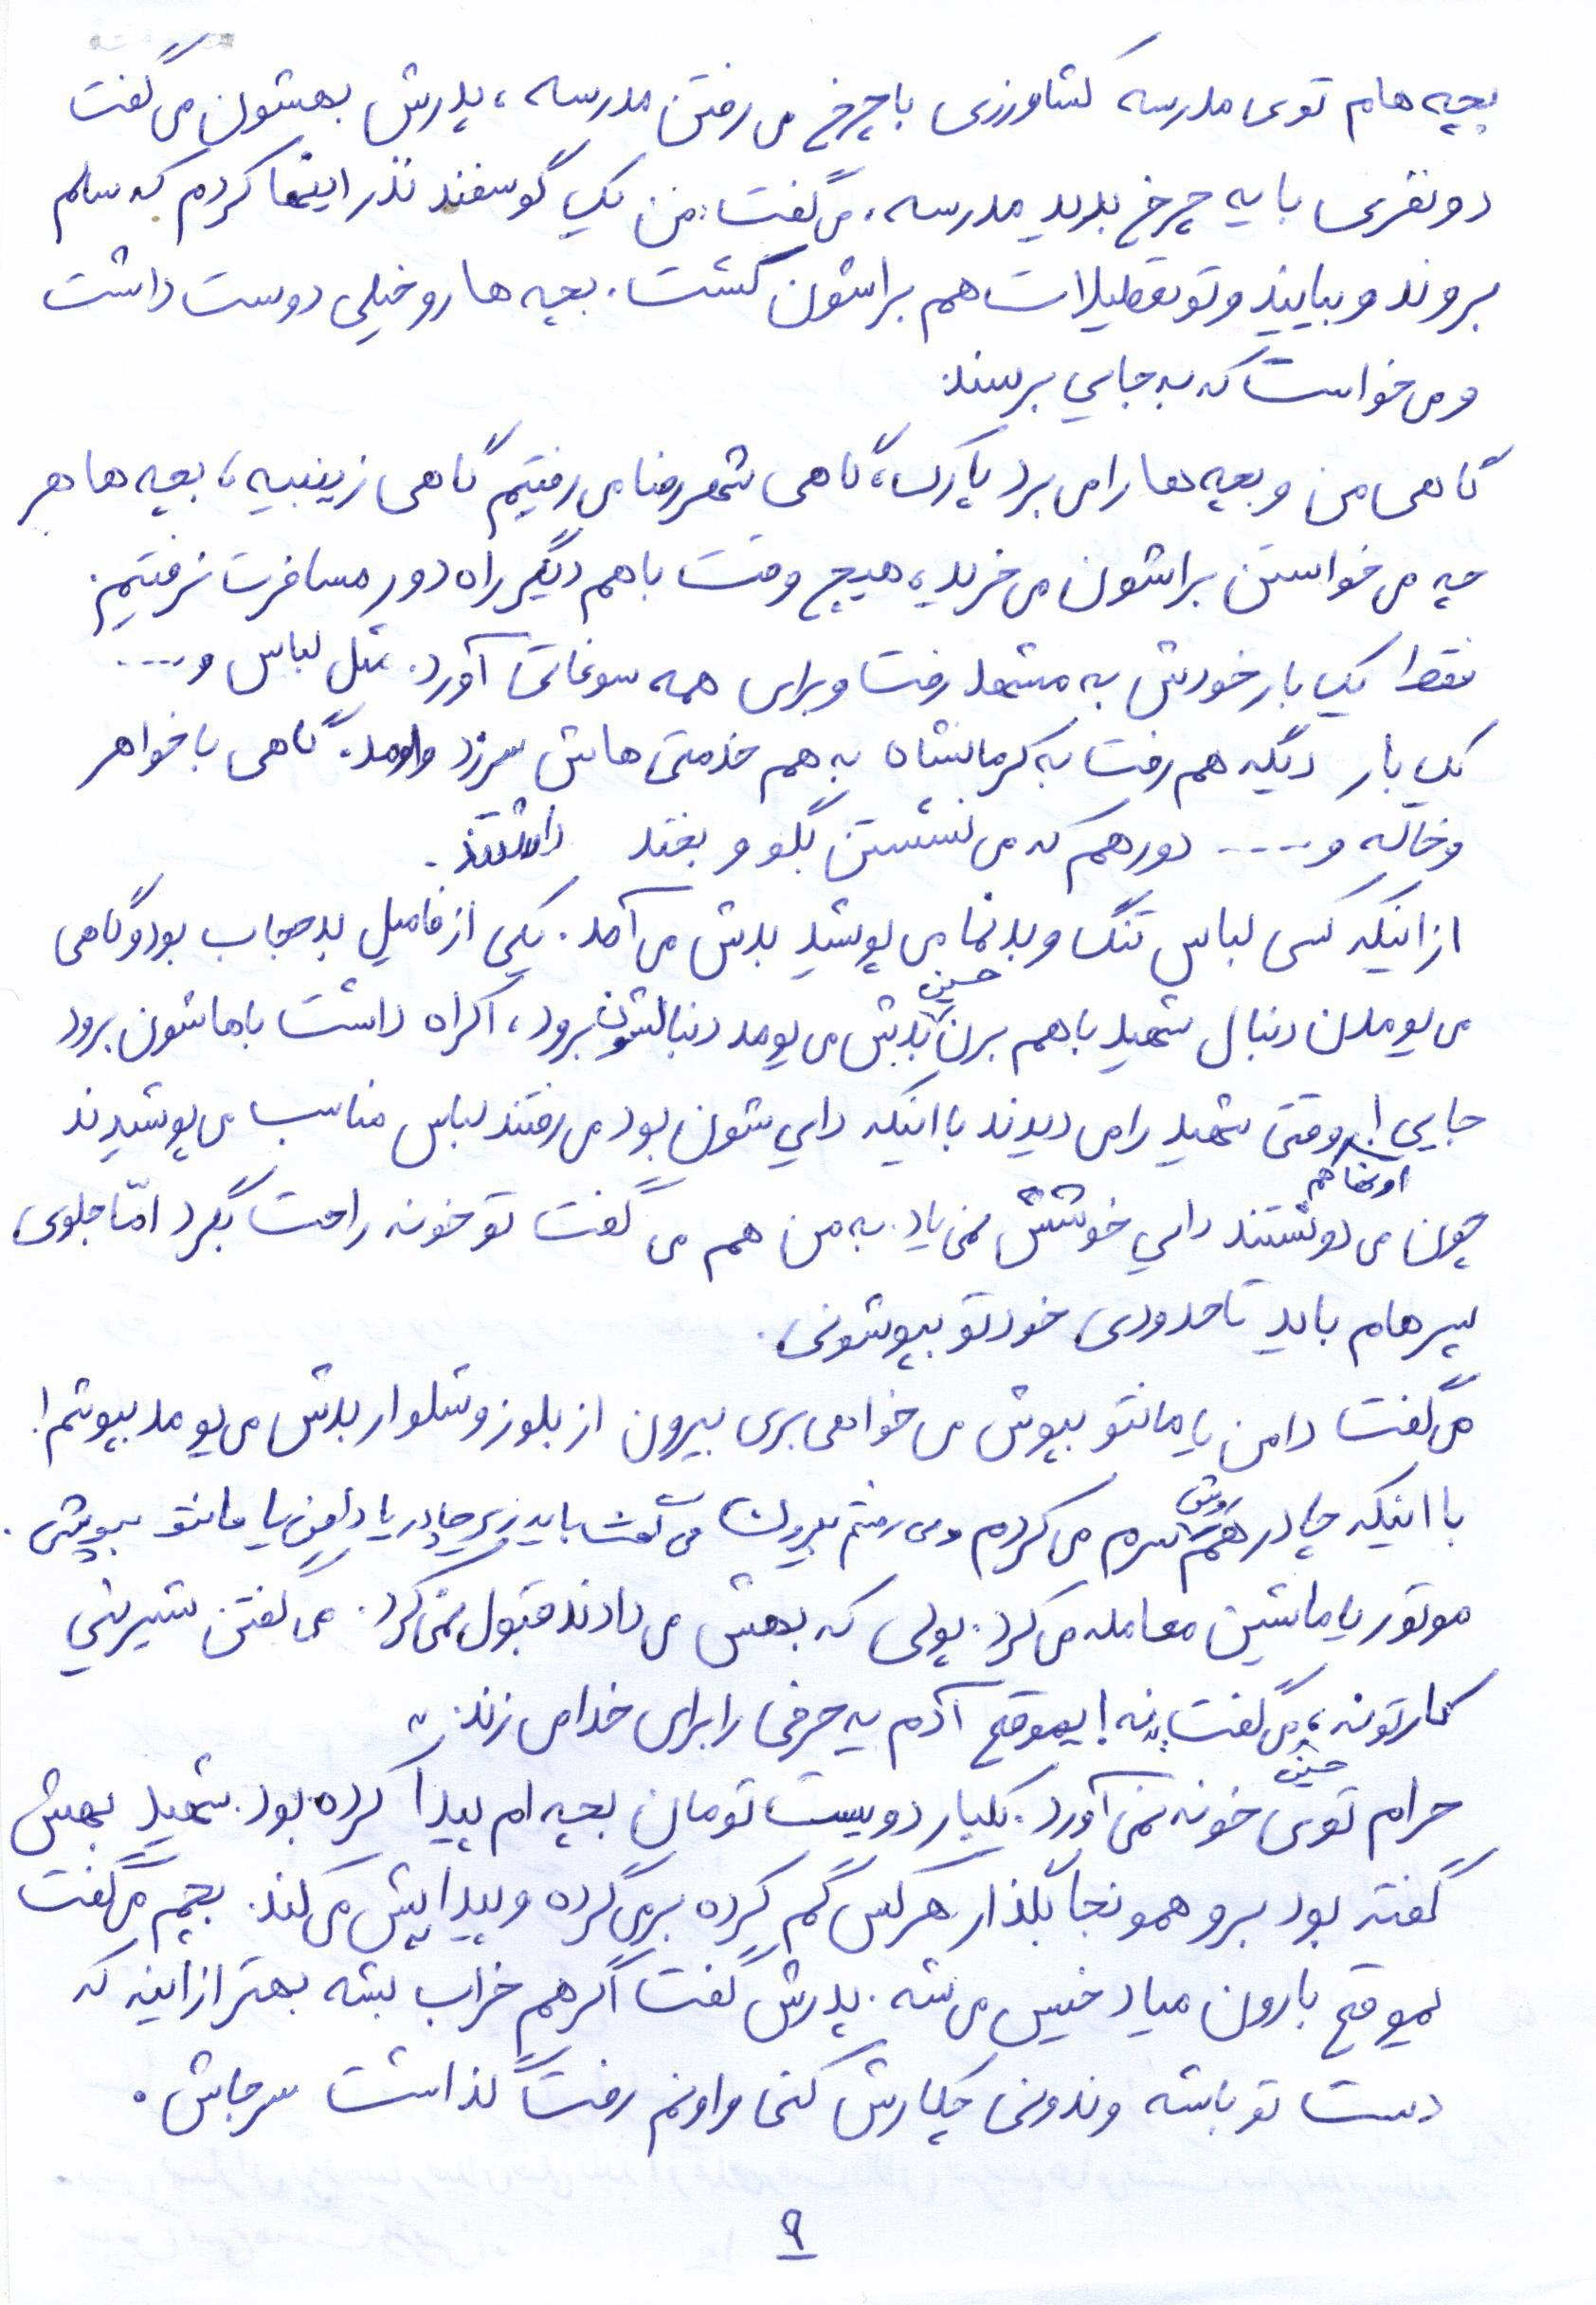 بچه هام توی مدرسه کشاورزی با چرخ می رفتن مدرسه، پدرش بهشون می گفت
دو نفری با یه چرخ برید مدرسه، می گفت: من یک گوسفند نذر اینها کردم که سالم
بروند و بیایند و تو تعطیلات هم براشون کشت. بچه ها رو خیلی دوست داشت
و می خواست که به جایی برسند.
گاهی من و بچه ها را می برد پارک، گاهی شهررضا می رفتیم گاهی زینبیه، بچه ها هر
چه می خواستن براشون می خرید، هیچ وقت با هم دیگر راه دور مسافرت نرفتیم.
فقط یک بار خودش به مشهد رفت و برای همه سوغاتی آورد. مثل لباس و ....
یک بار دیگه هم رفت به کرمانشاه به هم خدمتی هاش سر زد و اومد. گاهی با خواهر
و خاله و .... دور هم که می نشستن بگو و بخند داشتند.
از اینکه کسی لباس تنگ و بدنما می پوشید بدش می آمد. یکی از فامیل بدحجاب بود و گاهی
می یومدن دنبال شهید با هم برن حسین بدش می یومد دنبالشون برود، اکراه داشت باهاشون برود
جایی! وقتی شهید را می دیدند با اینکه دایی شون بود می رفتند لباس مناسب می پوشیدند
چون اونها هم می دونستند دایی خوشش نمی یاد. به من هم می گفت تو خونه راحت بگرد امّا جلوی
پسرهام باید تا حدودی خودتو بپوشونی.
می گفت دامن یا مانتو بپوش می خواهی بری بیرون از بلوز و شلوار بدش می یومد بپوشم!
با اینکه چادر هم روش سرم می کردم و می رفتم بیرون می گفت باید زیر چادر یا دامن یا مانتو بپوشی.
موتور یا ماشین معامله می کرد. پولی که بهش می دادند قبول نمی کرد. می گفتن شیرینی
کارتونه، می گفت: نه! یموقع آدم یه حرفی را برای خدا می زند.
حرام توی خونه نمی آورد. یکبار دویست تومان بچه ام پیدا کرده بود. شهید حسین بهش
گفته بود برو همونجا بگذار هر کس گم کرده برمی گرده و پیدایش می کند. بچم می گفت
یموقع بارون میاد خیس می شه. پدرش گفت اگر هم خراب بشه بهتر از اینه که
دست تو باشه و ندونی چکارش کنی و اونم رفت گذاشت سر جاش.
۹